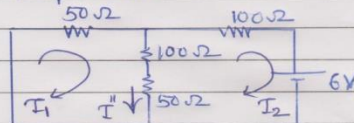 50Ω 100Ω
100Ω
50Ω 6V
I₁ I" I₂